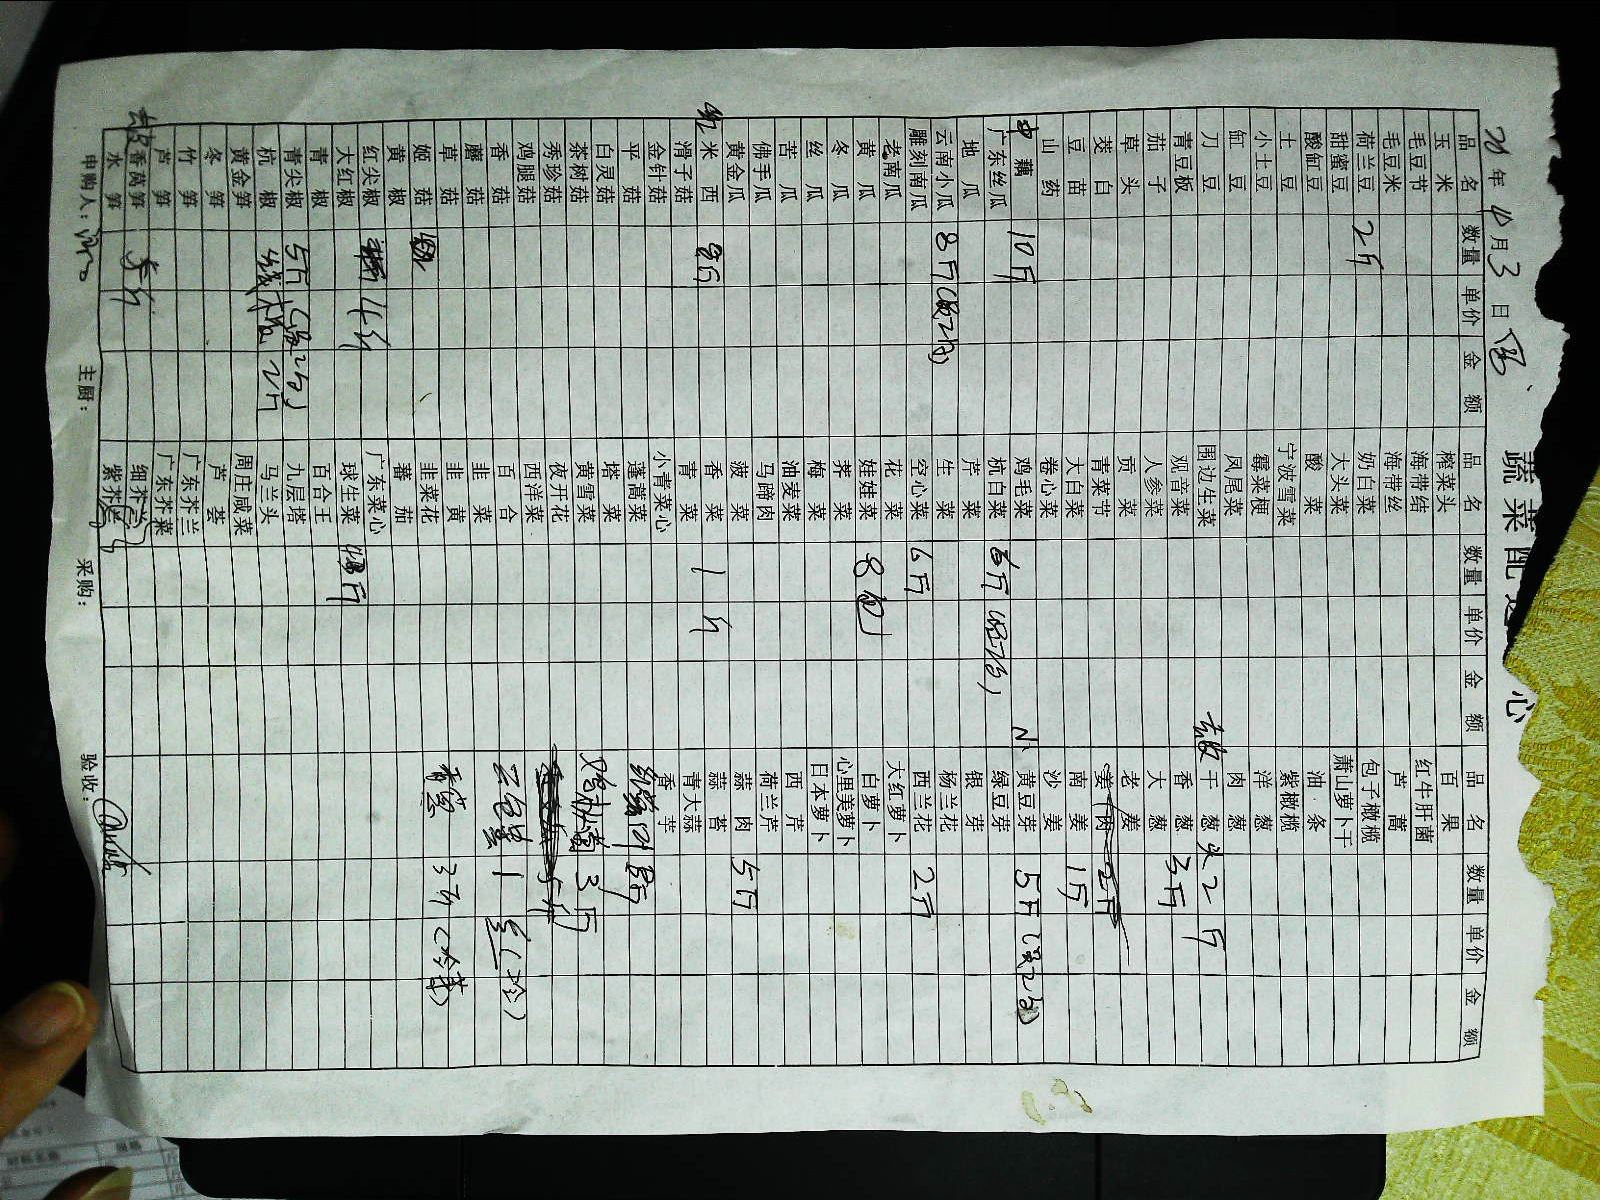 蔬菜配送 心
年 10月3日
品名 数量 单价 金额 品名 数量 单价 金额 品名 数量 单价 金额
玉米 榨菜头 百果
毛豆节 海带结 红牛肝菌
毛豆米 海带丝 芦蒿
荷兰豆 2斤 奶白菜 包子橄榄
甜蜜豆 大头菜 萧山萝卜干
酸缸豆 酸菜 油条
土豆 宁波雪菜 紫橄榄
小土豆 霉菜梗 洋葱
缸豆 凤尾菜 肉葱
刀豆 围边生菜 干葱头 2斤
青豆板 观音菜 香葱 3斤
茄子 人参菜 大葱
草头 贡菜 老姜
茭白 青菜节 姜肉 2斤
豆苗 大白菜 南姜 1斤
山药 卷心菜 沙姜
中藕 10斤 鸡毛菜 小黄豆芽 5斤
广东丝瓜 杭白菜 6斤 绿豆芽
地瓜 芹菜 银芽
云南小瓜 8斤 生菜 杨兰花
雕刻南瓜 空心菜 6斤 西兰花 2斤
老南瓜 花菜 大红萝卜
黄瓜 娃娃菜 8包 白萝卜
冬瓜 荠菜 心里美萝卜
丝瓜 梅菜 日本萝卜
苦瓜 油麦菜 西芹
佛手瓜 马蹄肉 荷兰芹
黄金瓜 菠菜 蒜肉 5斤
米西 8斤 香菜 1斤 蒜苔
滑子菇 青菜 青大蒜
金针菇 小青菜心 香芋
平菇 蓬蒿菜
白灵菇 塔菜
茶树菇 黄雪菜 3斤
秀珍菇 夜开花
鸡腿菇 西洋菜
香菇 百合
蘑菇 韭菜
草菇 韭黄
姬菇 韭菜花 3斤
黄椒 蕃茄
红尖椒 4斤 广东菜心
大红椒 球生菜
青椒 百合王
青尖椒 5斤 九层塔
杭椒 线椒 2斤 马兰头
黄金笋 周庄咸菜
冬笋 芦荟
竹笋 广东芥兰
芦笋 广东芥菜
香莴笋 细芥兰
水笋 紫芥兰
申购人： 主厨： 采购： 验收：